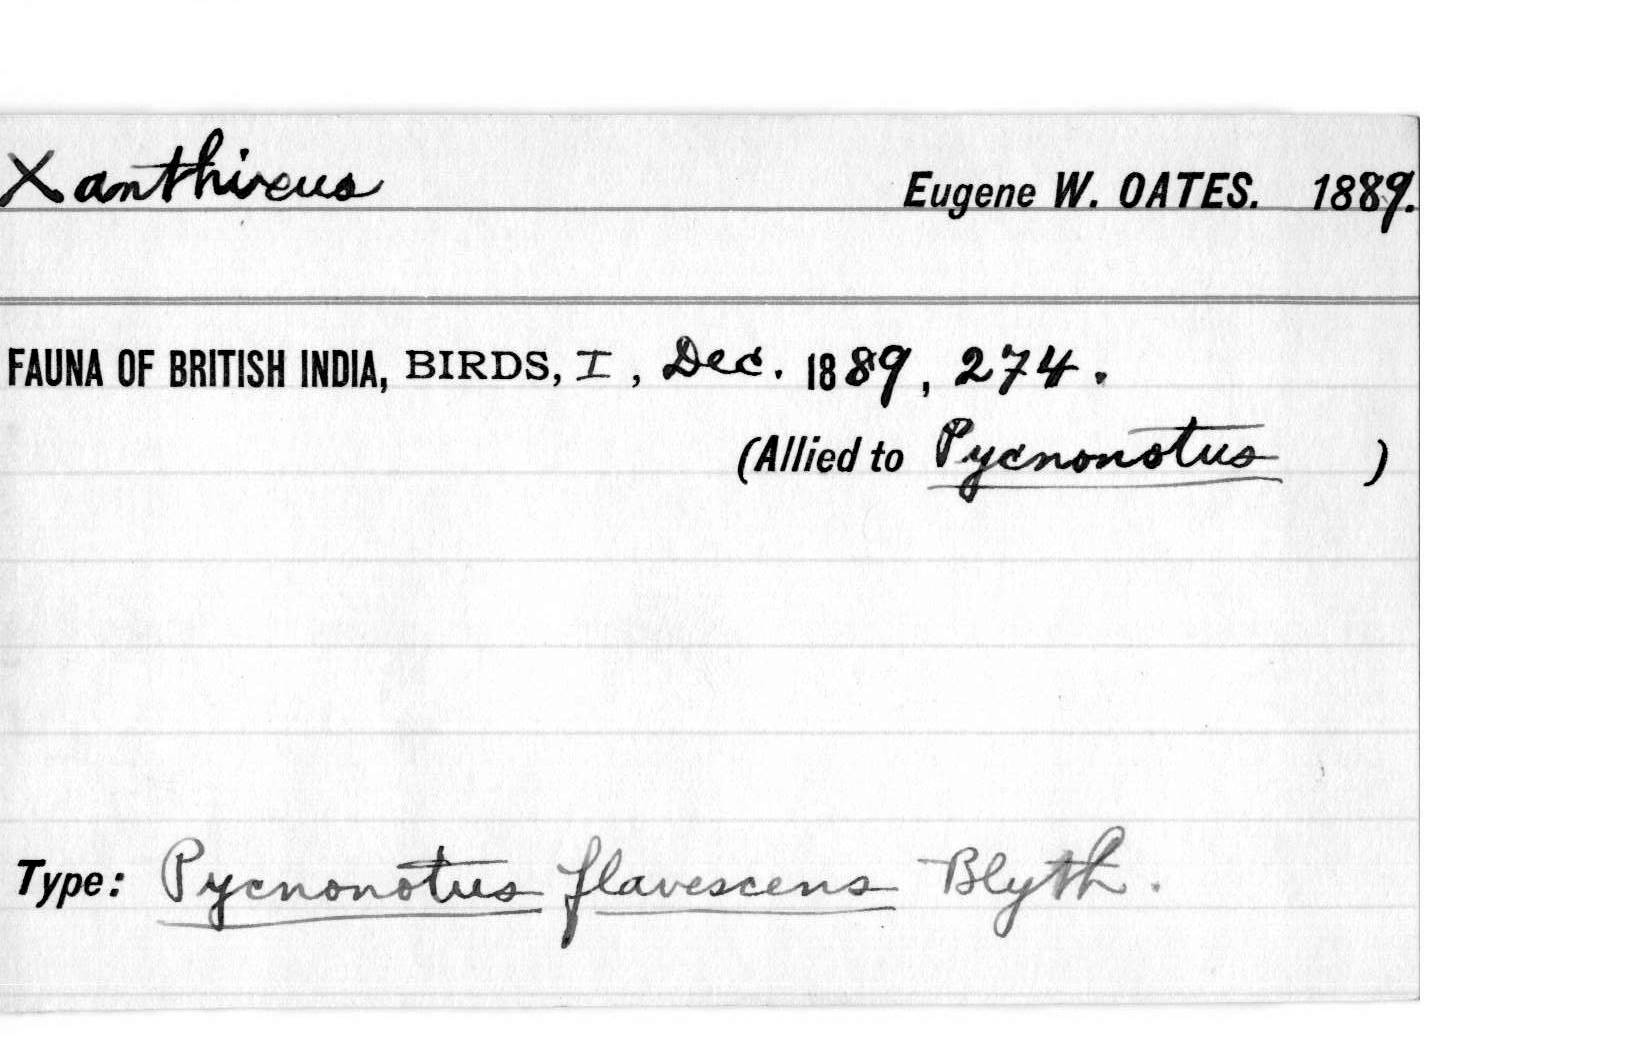 Xanthixus Eugene W. OATES. 1889.
FAUNA OF BRITISH INDIA, BIRDS, I, Dec. 1889, 274.
(Allied to Pycnonotus )
Type: Pycnonotus flavescens Blyth.